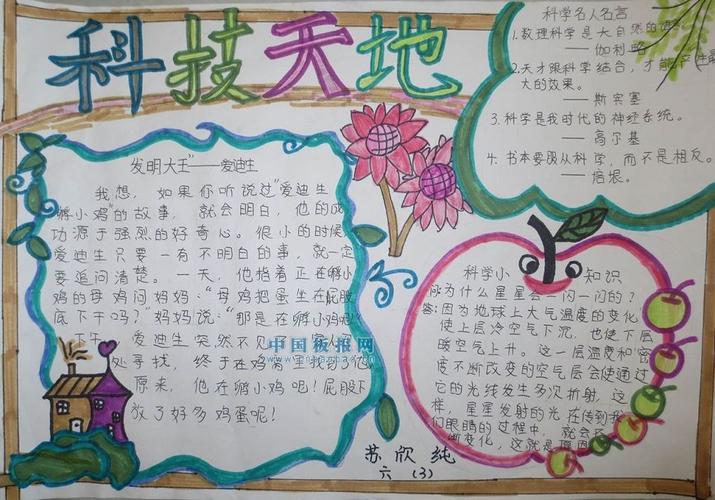 科技天地
发明大王”——爱迪生
我想，如果你听说过“爱迪生
孵小鸡”的故事，就会明白，他的成
功源于强烈的好奇心。很小的时候，
爱迪生只要一有不明白的事，就一定
要追问清楚。一天，他指着正在孵小
鸡的母鸡问妈妈：“母鸡把蛋生在屁股
底下干吗？”妈妈说：“那是在孵小鸡呢！”
下午，爱迪生突然不见
处寻找，终于在鸡
原来，他在孵小鸡吧！屁股下
放了好多鸡蛋呢！
中国板报网
科学名人名言
1.数理科学是大自然的语
——伽利略
2.天才跟科学结合，才能产生最
大的效果。
——斯宾塞
3.科学是我时代的神经系统。
——高尔基
4.书本要服从科学，而不是相反。
——培根。
科学小知识
问为什么星星会一闪一闪的？
答：因为地球上大气温度的变化
使上层冷空气下沉，也使下层
暖空气上升。这一层温度和密
度不断改变的空气层会使通过
它的光线发生多次折射，这
样，星星发射的光在传到我
们眼睛的过程中，就会
断变化，这就是原因
苏欣纯
六（3）